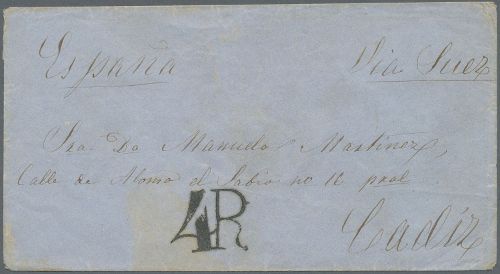 España
Via Suez
Sra. Da Manuela Martinez,
Calle de Alonso el Sabio no 16 pral.
4R
Cadiz